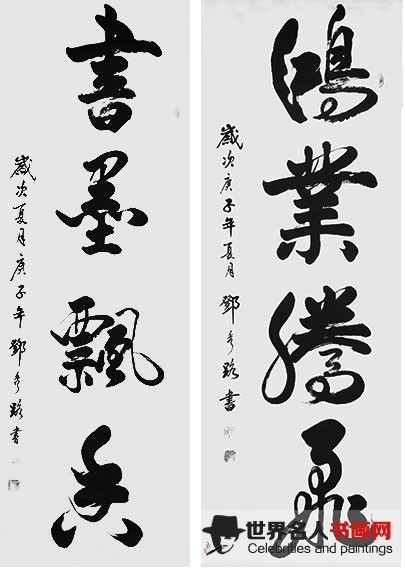 鴻業騰飛
歲次庚子年夏月 鄧秀路書
書墨飄香
歲次夏月庚子年 鄧秀路書
世界名人书画网
Celebrities and paintings